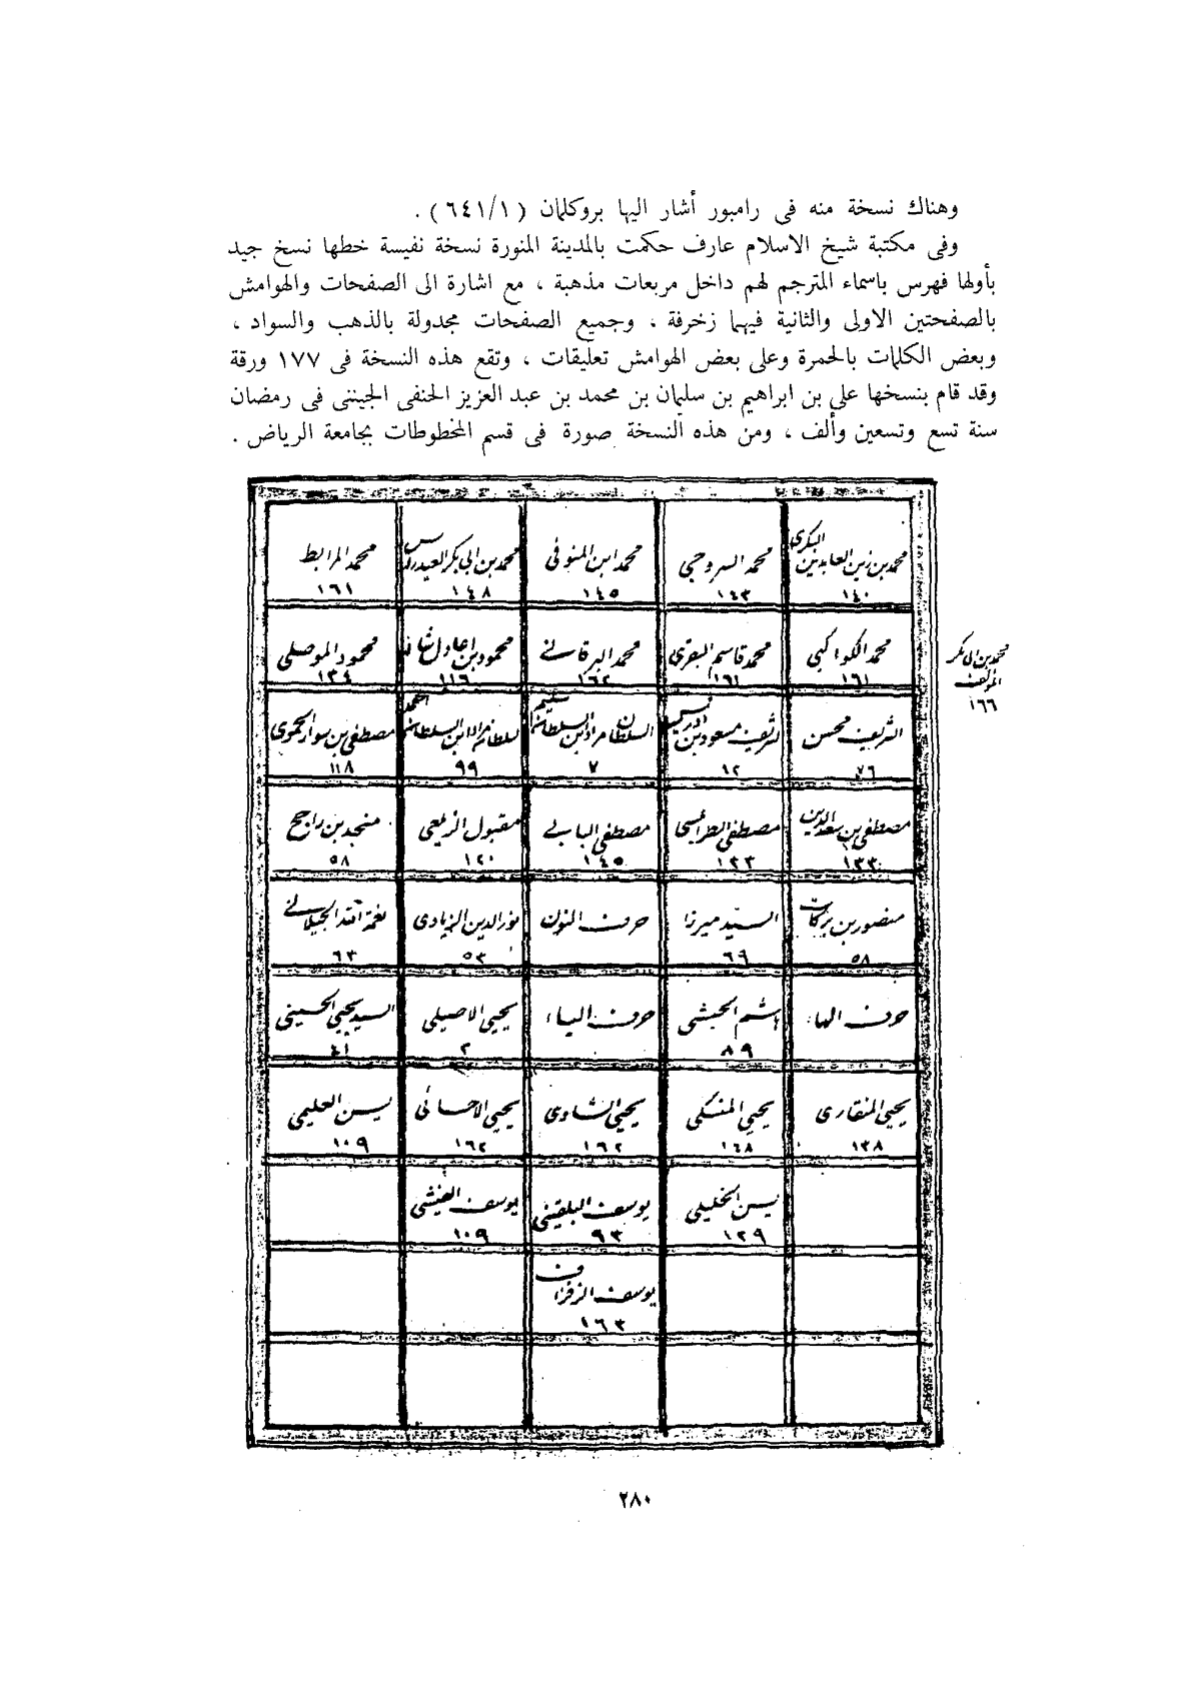 وهناك نسخة منه فى رامبور أشار اليها بروكلمان ( ٦٤١/١ ) .
وفى مكتبة شيخ الاسلام عارف حكمت بالمدينة المنورة نسخة نفيسة خطها نسخ جيد
بأولها فهرس باسماء المترجم لهم داخل مربعات مذهبة ، مع اشارة الى الصفحات والهوامش
بالصفحتين الاولى والثانية فيهما زخرفة ، وجميع الصفحات مجدولة بالذهب والسواد ،
وبعض الكلمات بالحمرة وعلى بعض الهوامش تعليقات ، وتقع هذه النسخة فى ١٧٧ ورقة
وقد قام بنسخها على بن ابراهيم بن سليمان بن محمد بن عبد العزيز الحنفى الجينتى فى رمضان
سنة تسع وتسعين وألف ، ومن هذه النسخة صورة فى قسم المخطوطات بجامعة الرياض .
محمد بن زين العابدين البكرى ١٤٠
محمد السروجى ١٤٣
محمد ابن المنوفى ١٤٥
محمد بن ابى بكر العيدروس ١٤٨
محمد المرابط ١٦١
محمد الكواكبى ١٦١
محمد قاسم البقرى ١٦١
محمد البرقانى ١٦٢
محمود بن عادل شاه ١١٦
محمود الموصلى ١٣٤
محمد بن ابى بكر
المؤلف
١٦٦
الشريف محسن ٧٦
الشريف مسعود بن ادريس ١٢
السلطان مراد ابن السلطان سليم ٧
السلطان مراد ابن السلطان احمد ٩٩
مصطفى بن سوار الحموى ١١٨
مصطفى بن سعد الدين ١٣٣
مصطفى الطرابلسى ١٣٣
مصطفى البابى ١٤٥
مقبول الزيلعى ١٢٠
منجد بن راجح ٥٨
منصور بن بركات ٥٨
السيد ميرزا ٦٩
حرف النون
نور الدين الزيادى ٥٣
نعمة الله الجيلانى ٦٣
حرف الهاء
هاشم الحبشى ٨٩
حرف الياء
يحيى الاصيلى ٢
السيد يحيى الحسينى ٤١
يحيى المنقارى ١٣٨
يحيى المنكى ١٤٨
يحيى الشاوى ١٦٢
يحيى الاحسائى ١٦٢
يسن العليمى ١٠٩
يسن الخليلى ١٢٩
يوسف البلقينى ٩٣
يوسف الفيشى ١٠٩
يوسف الزفزاف ١٦٣
٢٨٠